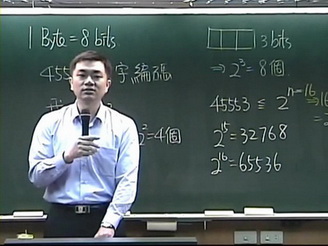 1 Byte = 8 bits
455
字編碼
2²=4個
3 bits
⇒ 2³ = 8個
45553 ≤ 2ⁿ⁼¹⁶
2¹⁵=32768
2¹⁶=65536